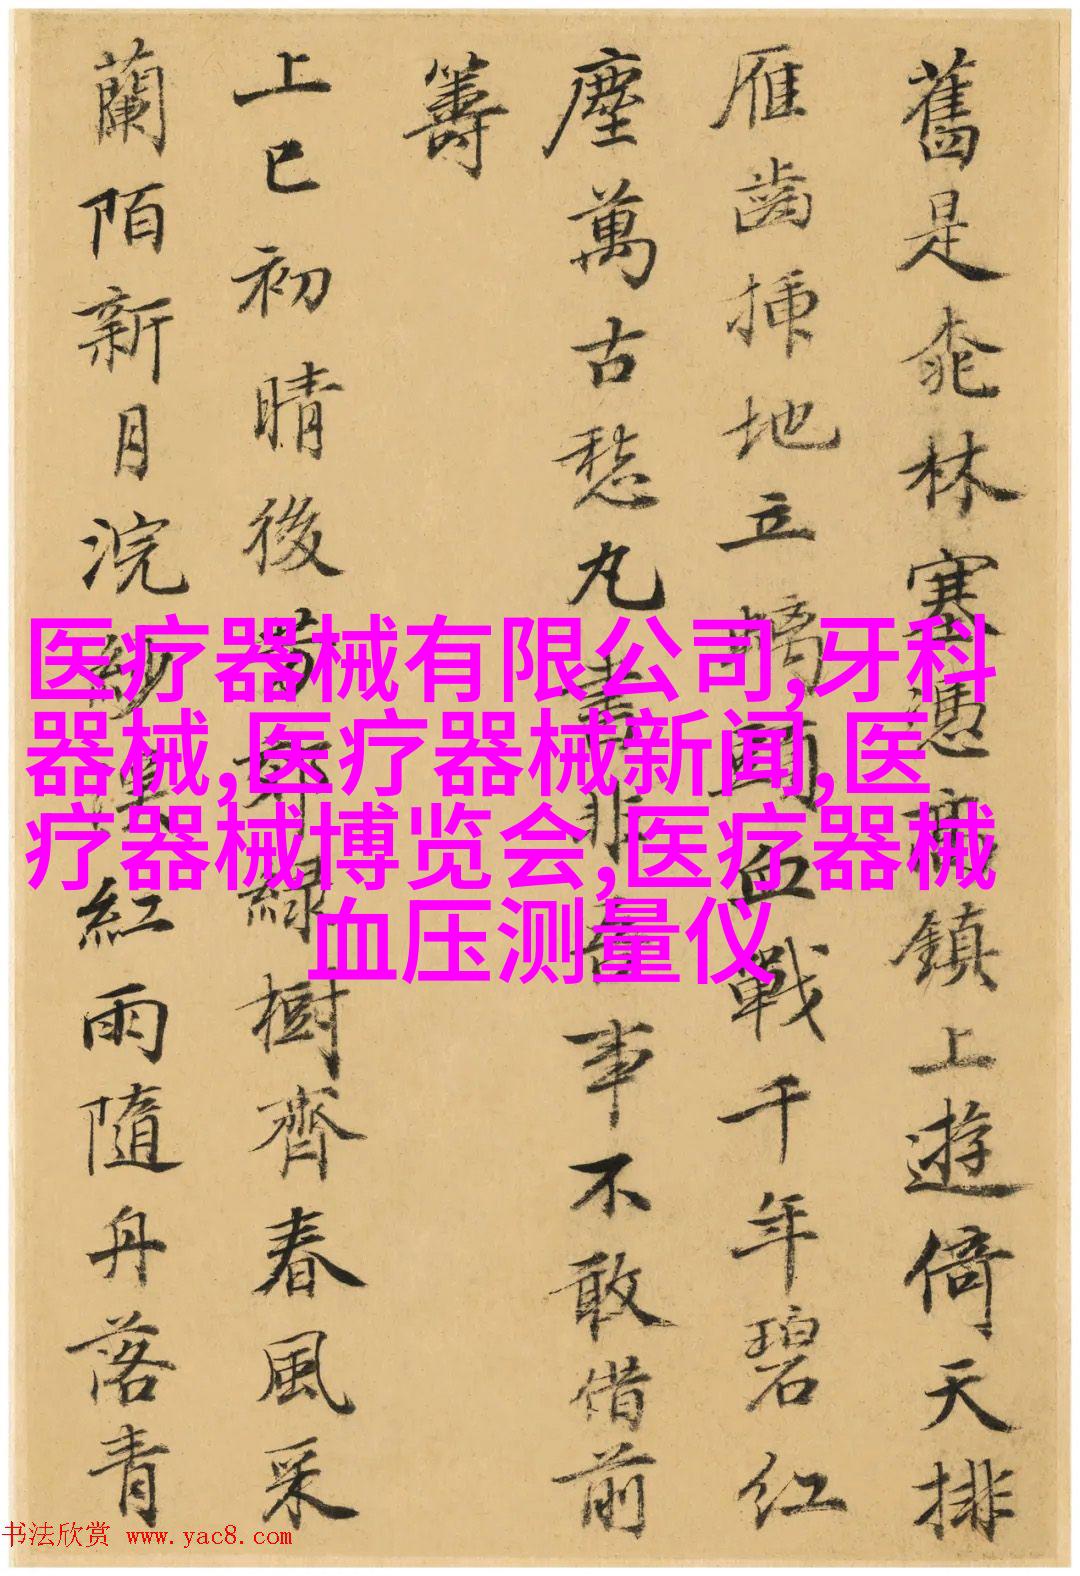 舊是林塞憑鎮上遊倚天排
雁齒插地立螭頭血戰千年碧紅
塵萬古愁丸書非吾事不敢借前
籌
上巳初晴後芳郊綠樹齊春風采
蘭陌新月浣紗溪紅雨隨舟落青
医疗器械有限公司,牙科
器械,医疗器械新闻,医
疗器械博览会,医疗器械
血压测量仪
书法欣赏 www.yac8.com